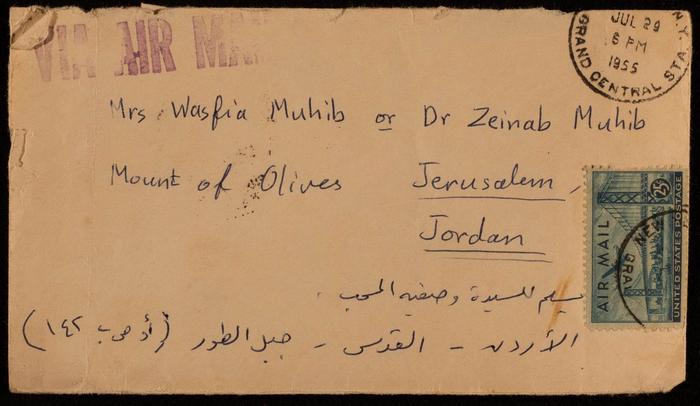 VIA AIR MAI
JUL 29
6 PM
1955
GRAND CENTRAL STA. N.Y.
Mrs Wasfia Muhib or Dr Zeinab Muhib
Mount of Olives Jerusalem,
Jordan
25¢
AIR MAIL
UNITED STATES POSTAGE
NEW
GRA
للسيدة وصفيه المحب
الأردن - القدس - جبل الطور (أو ص ب ١٤٢)